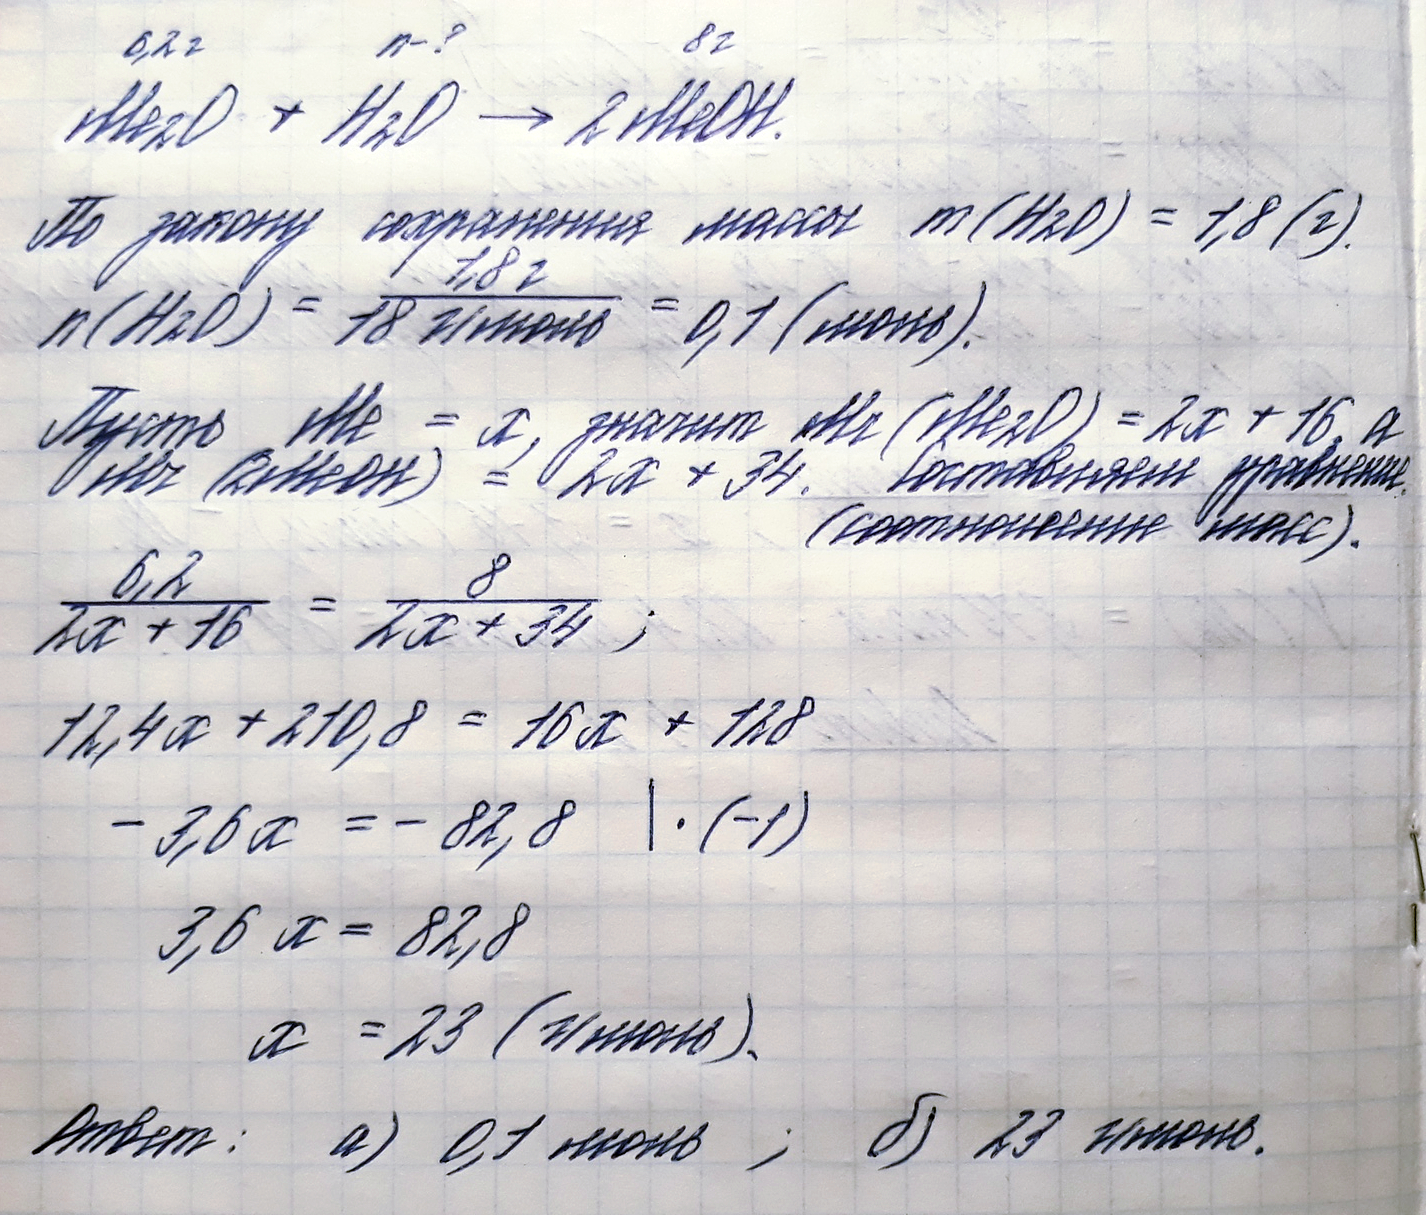 6,2 г n-? 8 г
Me₂O + H₂O → 2MeOH.
По закону сохранения массы m(H₂O) = 1,8 (г).
n(H₂O) = 1,8 г / 18 г/моль = 0,1 (моль).
Пусть Me = x, значит Mr (Me₂O) = 2x + 16, а
Mr (2MeOH) = 2x + 34. Составляем уравнение.
(соотношение масс).
6,2 / 2x + 16 = 8 / 2x + 34 ;
12,4x + 210,8 = 16x + 128
- 3,6x = - 82,8 | · (-1)
3,6 x = 82,8
x = 23 (г/моль).
Ответ: а) 0,1 моль ; б) 23 г/моль.